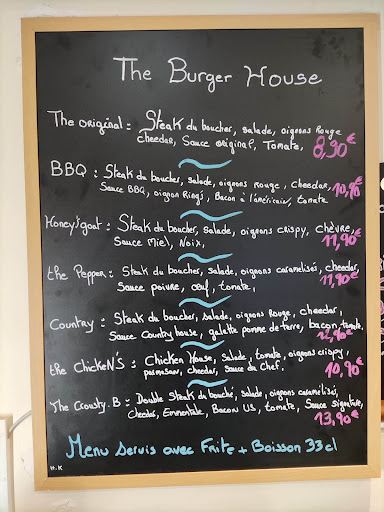 The Burger House
The original : Steak du boucher, salade, oignons Rouge
cheedar, Sauce original, Tomate, 8,90€
BBQ : Steak du boucher, salade, oignons rouge, cheedar, 10,90€
Sauce BBQ, oignon Rings, Bacon à l'américain, tomate
Honey'goat : Steak du boucher, salade, oignons crispy, chèvre,
Sauce Miel, Noix, 11,90€
the Pepper : Steak du boucher, salade, oignons caramelisés, cheedar,
Sauce poivre, œuf, tomate, 11,90€
Country : Steak du boucher, salade, oignons Rouge, cheedar,
Sauce Country house, galette pomme de terre, bacon, tomate,
12,90€
the ChickeN'S : Chicken House, salade, tomate, oignons crispy,
parmesan, cheedar, sauce du chef. 10,90€
The Crousty.B : Double Steak du bouché, salade, oignons caramelisés,
Cheedar, Emmentale, Bacon US, tomate, Sauce signature,
13,90€
Menu servis avec Frite + Boisson 33cl
H.K